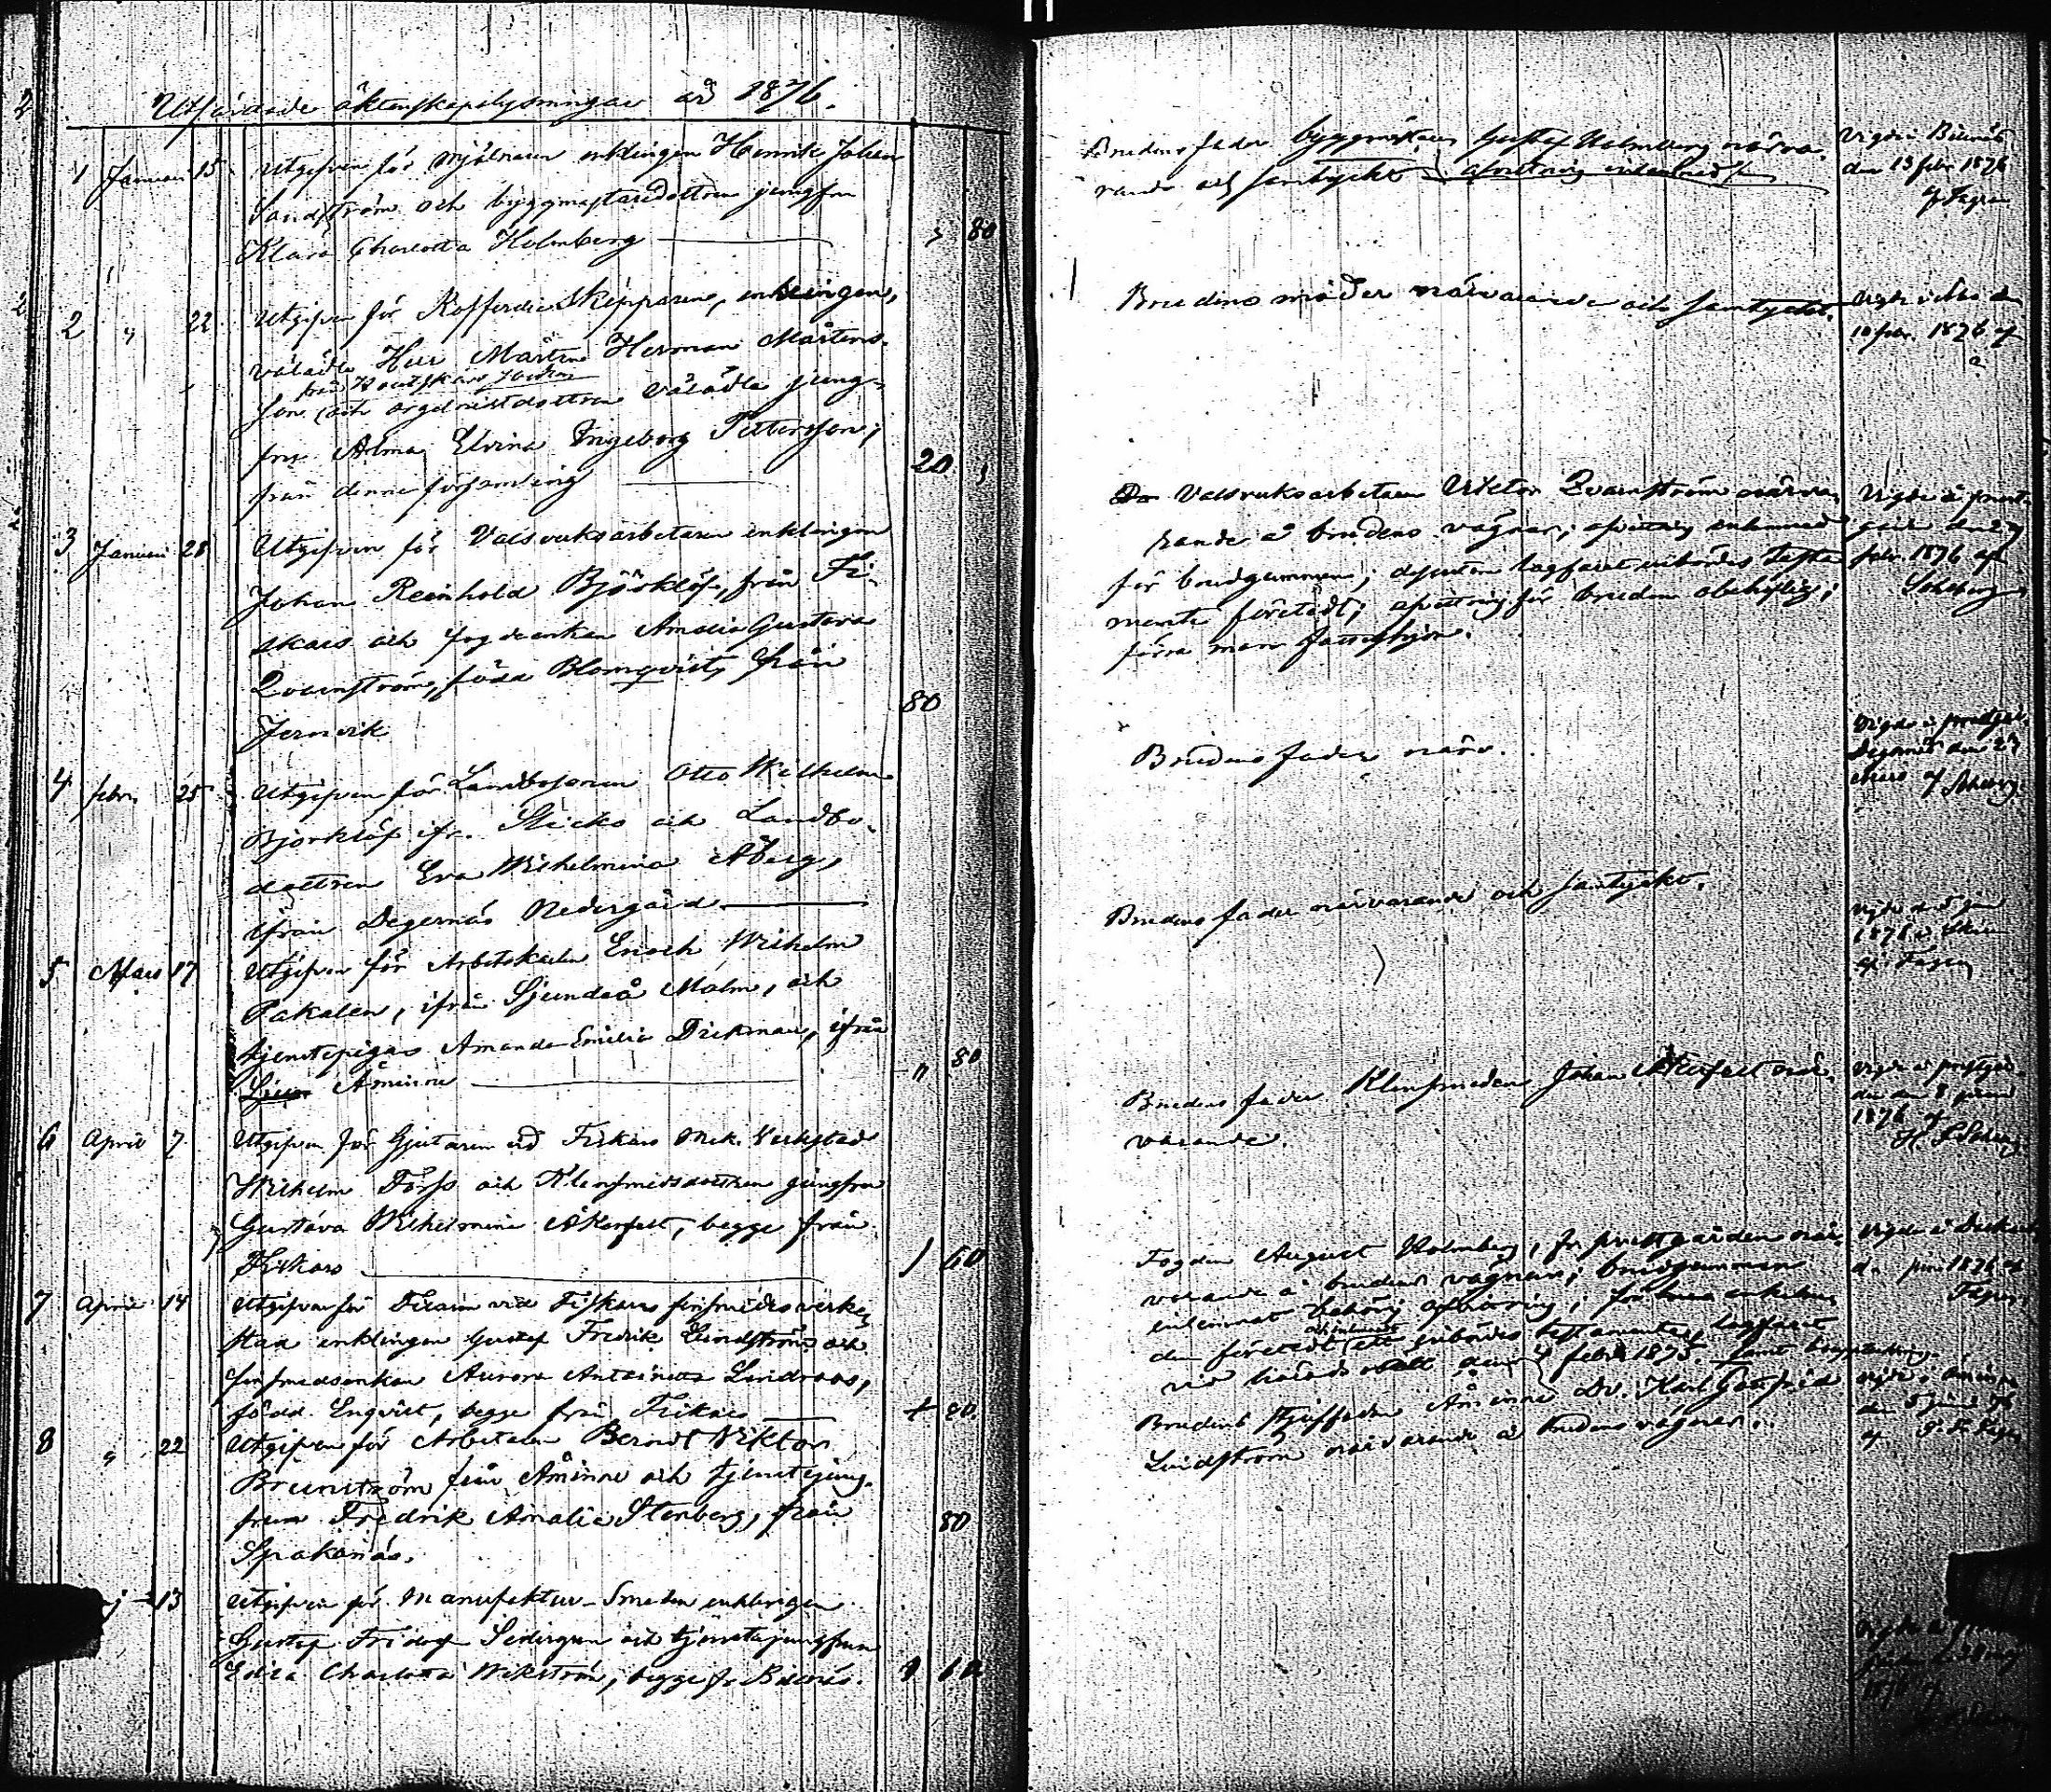 2
Utfärdade äktenskapslysningar år 1876.
1 Januari 15 Utgifven för mjölnaren enklingen Henrik Johan
Sandström och byggmästaredottren jungfru
Klara Charlotta Holmberg
80
2 " 22 Utgifven för Kofferdie Skepparen, enklingen,
välädle Herr Mårten Herman Mårtens-
från Houtskär
son och orgelnistdottren välädla jung-
fru Alma Elvina Ingeborg Pettersson,
från denna församling
20
3 Januari 28 Utgifven för Valsverksarbetaren enklingen
Johan Reinhold Björklöf, från Fi-
skars och fogdeenkan Amalia Gustava
Qvarnström, född Blomqvist, från
Jernvik
80
4 febr. 25 Utgifven för Landbosonen Otto Wilhelm
Björklöf ifr. Sticko och Landbo-
dottren Eva Wilhelmina Åberg,
ifrån Degernäs Nedergård
5 Mars 17 Utgifven för Arbetskarlen Enoch Wilhelm
Pakalen, ifrån Sjundeå Malm, och
tjenstepigan Amanda Emilia Dickman, ifrån
Åminne
" 80
6 April 7 Utgifven för Gjutaren vid Fiskars Mek. Verkstad
Wilhelm Forss och Klensmedsdottren jungfru
Gustava Wilhelmina Åkerfelt, begge från
Fiskars
1 60
7 April 14 Utgifven för Filaren vid Fiskars finsmidesverk-
stad enklingen Gustaf Fredrik Lindström och
finsmedsenkan Aurora Antoinetta Lindroos,
född Enqvist, begge från Fiskars
80
8 " 22 Utgifven för Arbetaren Berndt Viktor
Brunström från Åminne och tjenstejung-
frun Fredrik Amalia Stenberg, från
Spakanäs.
80
13 Utgifven för Manufaktur-Smeden enklingen
Gustaf Fridolf Sedergren och tjenstejungfrun
Edla Charlotta Wikström, begge fr Billnäs.
1 60
Brudens fader byggmästaren Gustaf Holmberg närva-
rande och samtyckt afvittring inlemnad
Vigde i Billnäs
den 13 febr 1876
af
Brudens moder närvarande och samtyckt.
Vigde den
10 febr. 1876 af
Valsverksarbetaren Viktor Qvarnström närva-
rande å brudens vägnar; afvittring inlemnad
för brudgummen; dessutom lagfaret inbördes testa-
mente företedt; afvittring för bruden obehöflig;
förra man
Vigde å prest-
gården den
febr. 1876 af
Brudens fader närv.
Vigde i
Degernäs den
mars af
Brudens fader närvarande och samtyckt.
Vigde d. 5 juni
1876 i
af
Brudens fader Klensmeden Johan Åkerfelt när-
varande.
Vigde å prestgår-
den den 8 juni
1876 af
Fogden August Holmberg, fr prestgården när-
varande å brudens vägnar; brudgummen
inlemnat behörig afvittring; för
den företedt ett inbördes testamente, lagfaret
vid häradsrätt den 4 febr 1875.
Vigde i
d. juni 1876 af
Brudens styffader Åminne Dr. Karl Gustafrid
Lindström närvarande å brudens vägnar.
Vigde i Åminne
den 5 juni 76
af
Vigde å
1876 af